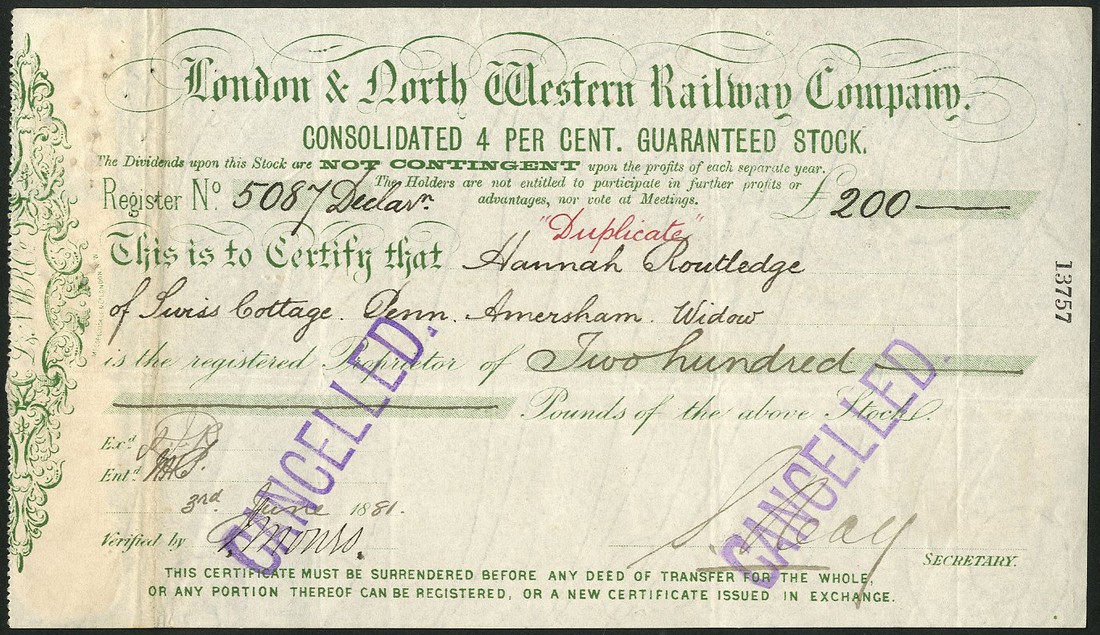 London & North Western Railway Company.
CONSOLIDATED 4 PER CENT. GUARANTEED STOCK.
The Dividends upon this Stock are NOT CONTINGENT upon the profits of each separate year.
The Holders are not entitled to participate in further profits or
advantages, nor vote at Meetings.
Register No. 5087 Declarn
£200
"Duplicate"
This is to Certify that Hannah Routledge
of Swiss Cottage. Penn. Amersham. Widow
is the registered Proprietor of Two hundred
Pounds of the above Stock.
13757
Exd.
Entd.
3rd. June 1881.
Verified by
S. Reay
SECRETARY.
CANCELLED.
CANCELLED.
THIS CERTIFICATE MUST BE SURRENDERED BEFORE ANY DEED OF TRANSFER FOR THE WHOLE,
OR ANY PORTION THEREOF CAN BE REGISTERED, OR A NEW CERTIFICATE ISSUED IN EXCHANGE.